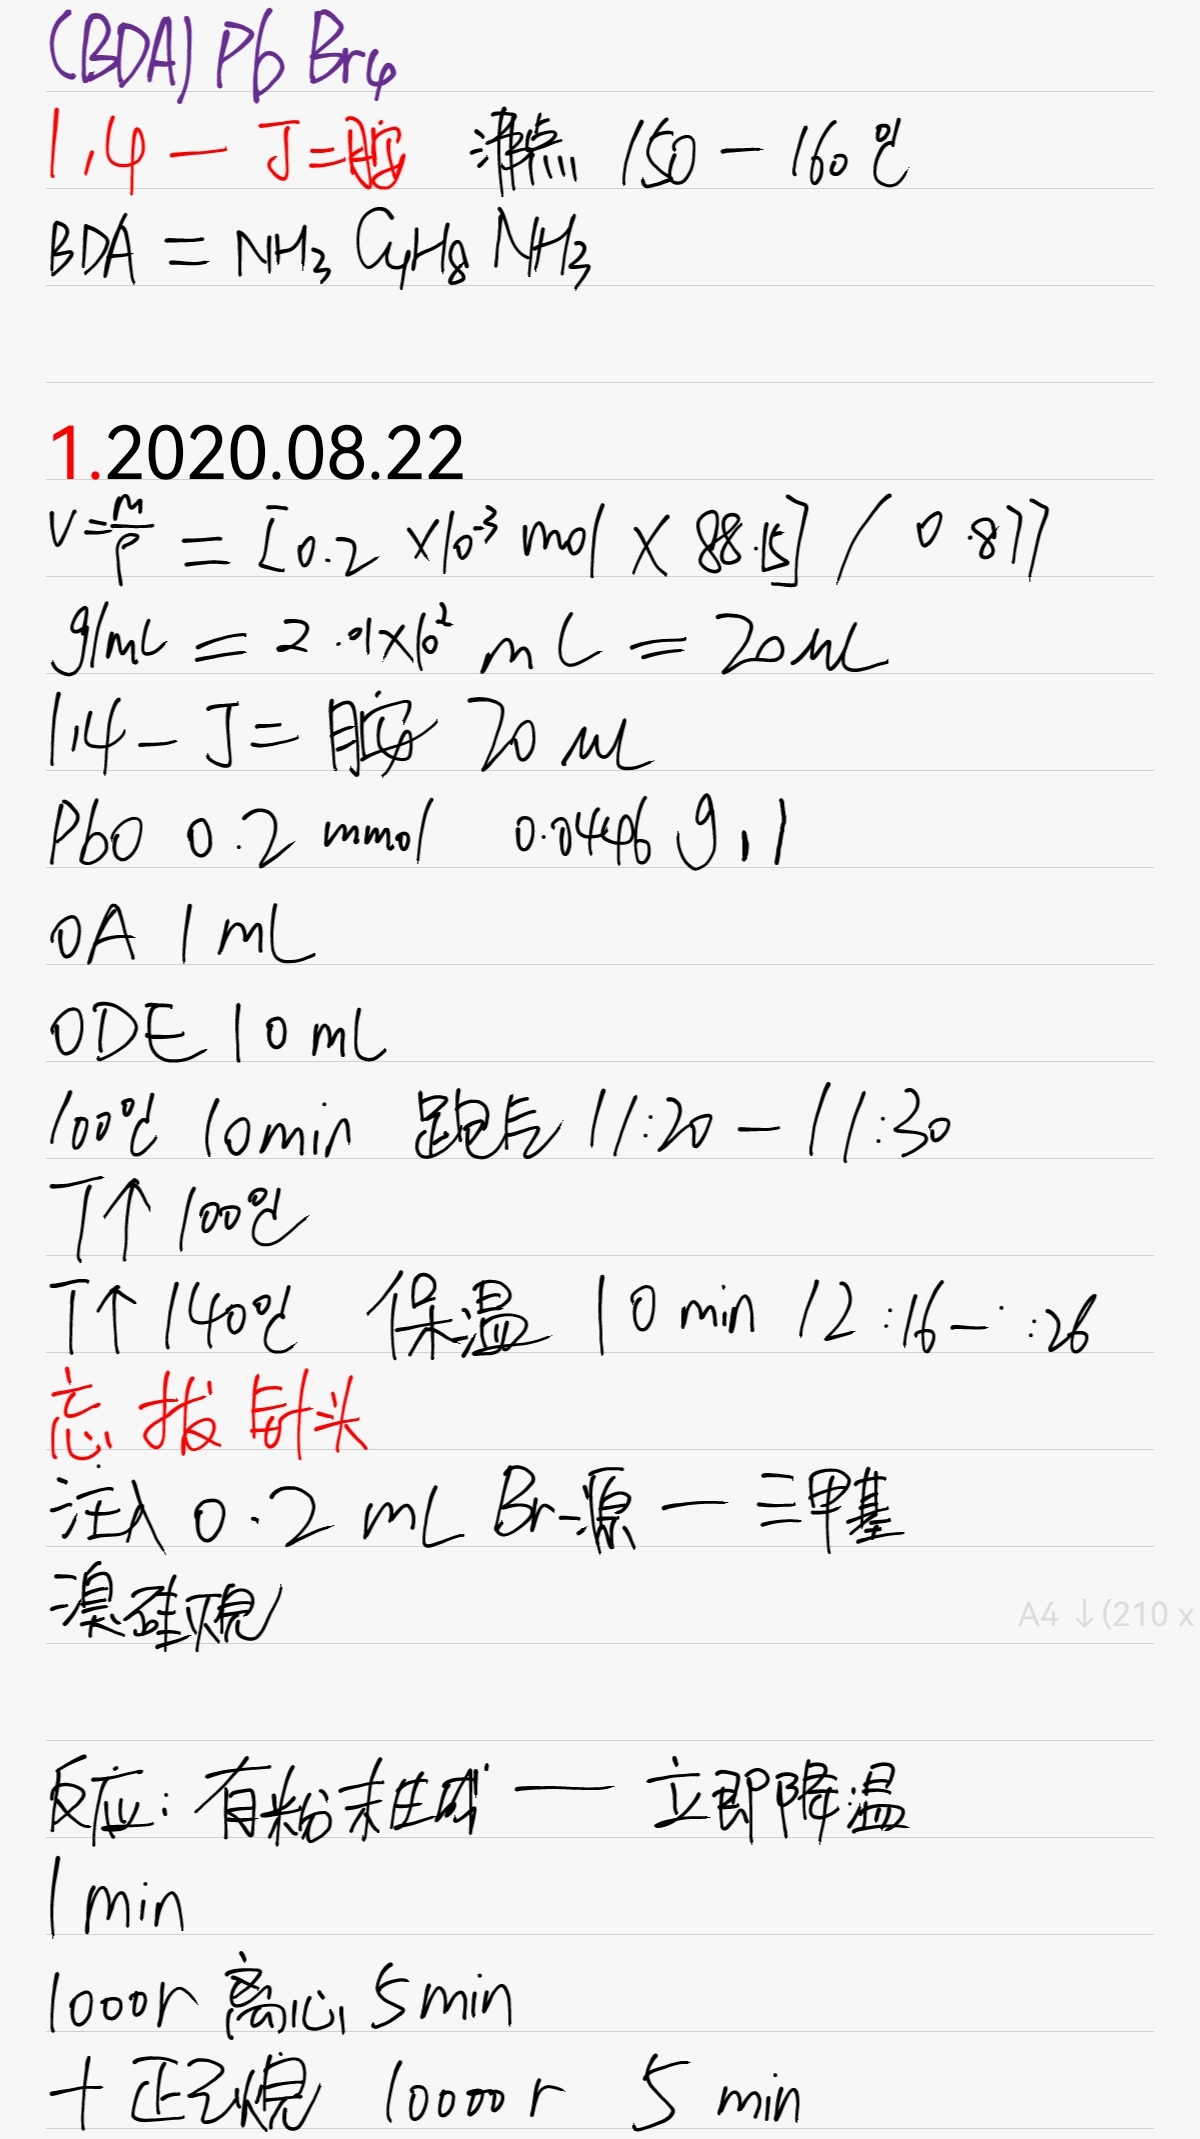 (BDA)PbBr4
1,4-丁二胺 沸点 150-160℃
BDA = NH3C4H8NH3
1.2020.08.22
V=m/ρ = [0.2×10-3 mol × 88.15] / 0.877
g/mL = 2.01×10-2 mL = 20uL
1,4-丁二胺 20uL
PbO 0.2 mmol 0.0446g,1
OA 1mL
ODE 10mL
100℃ 10min 跑气 11:20-11:30
T↑ 100℃
T↑ 140℃ 保温 10min 12:16-:26
忘拔针头
注入 0.2 mL Br-源一三甲基
溴硅烷
反应:有粉末生成 — 立即降温
1 min
1000r 离心 5min
+正己烷 10000r 5 min
A4 ↓(210 x